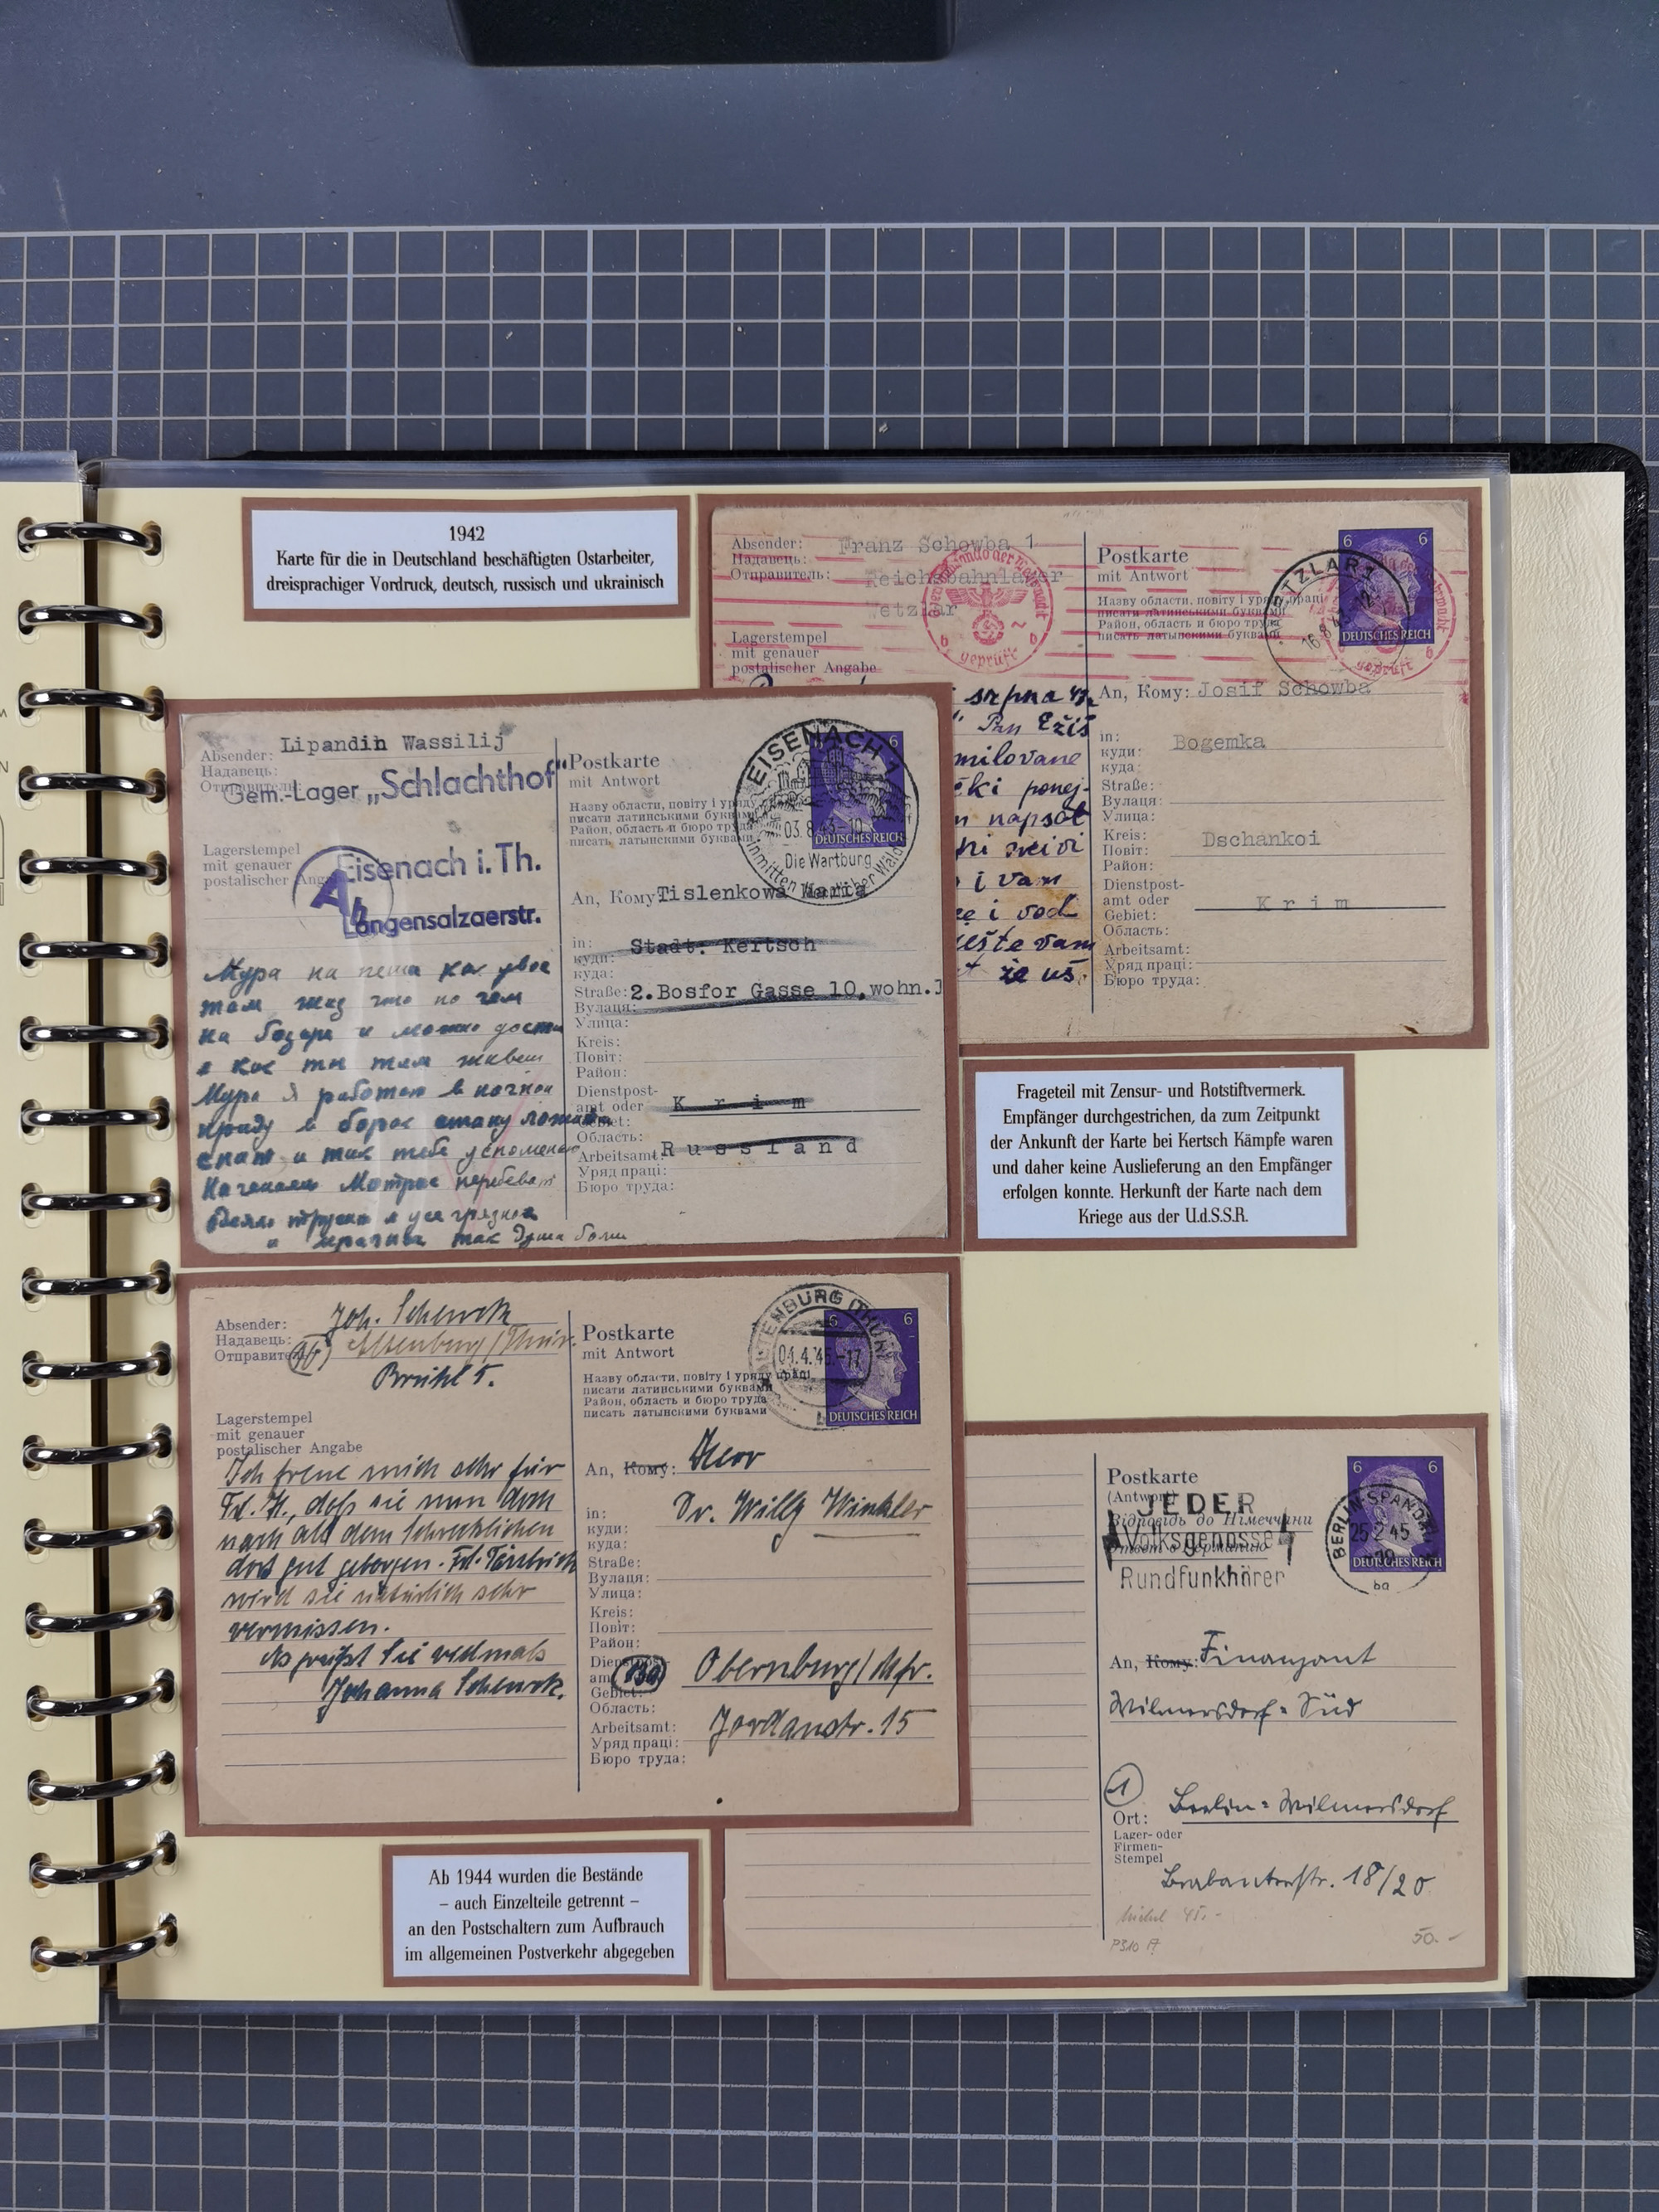 1942
Karte für die in Deutschland beschäftigten Ostarbeiter,
dreisprachiger Vordruck, deutsch, russisch und ukrainisch
Absender: Franz Schowba 1
Надавець:
Отправитель: Reichsbahnlager
Wetzlar
Lagerstempel
mit genauer
postalischer Angabe
Oberkommando der Wehrmacht
geprüft
b b
srpna
Pan Ežiš
milovane
napsat
i vam
i vod
vam
že už
Postkarte
mit Antwort
Назву области, повіту і уряду праці
писати латинськими буквами
Район, область и бюро труда
писать латынскими буквами
WETZLAR 1
6 6
DEUTSCHES REICH
geprüft
An, Кому: Josif Schowba
in: Bogemka
куди:
куда:
Straße:
Вулаця:
Улица:
Kreis: Dschankoi
Повіт:
Район:
Dienstpost-
amt oder Krim
Gebiet:
Область:
Arbeitsamt:
Уряд праці:
Бюро труда:
Absender: Lipandin Wassilij
Надавець:
Отправитель:
Gem.-Lager „Schlachthof"
Lagerstempel
mit genauer
postalischer Anga
Eisenach i. Th.
Langensalzaerstr.
Мура на пеша как
там
на базаре и можно
и как ты там живеш
Мура Я работаю в ночной
приду в барак стану
спат и так тебе
Матрас
и так Душа боли
Postkarte
mit Antwort
Назву области, повіту і уряду
писати латинськими буквами
Район, область и бюро труда
писать латынскими буквами
EISENACH 1
03.8.43-10
Die Wartburg
inmitten deutscher Wald
6
DEUTSCHES REICH
An, Кому Tislenkowa Maria
in: Stadt. Kertsch
куди:
куда:
Straße: 2.Bosfor Gasse 10,wohn.
Вулаця:
Улица:
Kreis:
Повіт:
Район:
Dienstpost-
amt oder Krim
Gebiet:
Область:
Arbeitsamt: Russland
Уряд праці:
Бюро труда:
Frageteil mit Zensur- und Rotstiftvermerk.
Empfänger durchgestrichen, da zum Zeitpunkt
der Ankunft der Karte bei Kertsch Kämpfe waren
und daher keine Auslieferung an den Empfänger
erfolgen konnte. Herkunft der Karte nach dem
Kriege aus der U.d.S.S.R.
Absender: Joh. Schenck
Надавець: Altenburg/Thür.
Отправитель
Brühl 5.
Lagerstempel
mit genauer
postalischer Angabe
Ich freue mich sehr für
Frl. H., daß sie nun dem
nach all dem Schrecklichen
dort gut geborgen. Frl.
wird sie natürlich sehr
vermissen.
Es grüßt Sie vielmals
Johanna Schenck.
Postkarte
mit Antwort
Назву области, повіту і уряду праці
писати латинськими буквами
Район, область и бюро труда
писать латынскими буквами
ALTENBURG (THÜR)
04.4.45.-17
b
6 6
DEUTSCHES REICH
An, Кому: Herr
in: Dr. Willy Winkler
куди:
куда:
Straße:
Вулаця:
Улица:
Kreis:
Повіт:
Район:
Obernburg/Mfr.
Gebiet:
Область:
Arbeitsamt: Jordanstr. 15
Уряд праці:
Бюро труда:
Postkarte
(Antwort)
Відповідь до Німеччини
JEDER
Volksgenosse
Rundfunkhörer
BERLIN-SPANDAU
25.2.45
ba
6 6
DEUTSCHES REICH
An, Кому: Finanzamt
Wilmersdorf-Süd
1
Ort: Berlin-Wilmersdorf
Lager- oder
Firmen-
Stempel
Brabanterstr. 18/20
Michel 45.-
P310 A
50.-
Ab 1944 wurden die Bestände
– auch Einzelteile getrennt –
an den Postschaltern zum Aufbrauch
im allgemeinen Postverkehr abgegeben